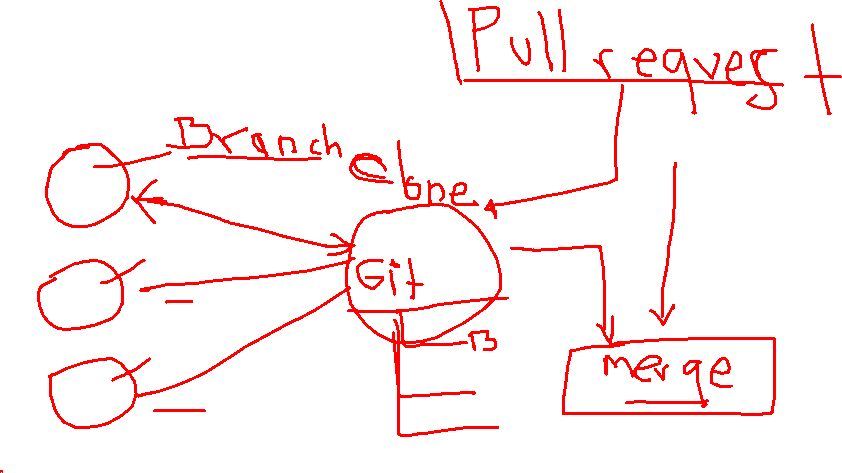 Pull request
Branch
Clone
Git
B
merge